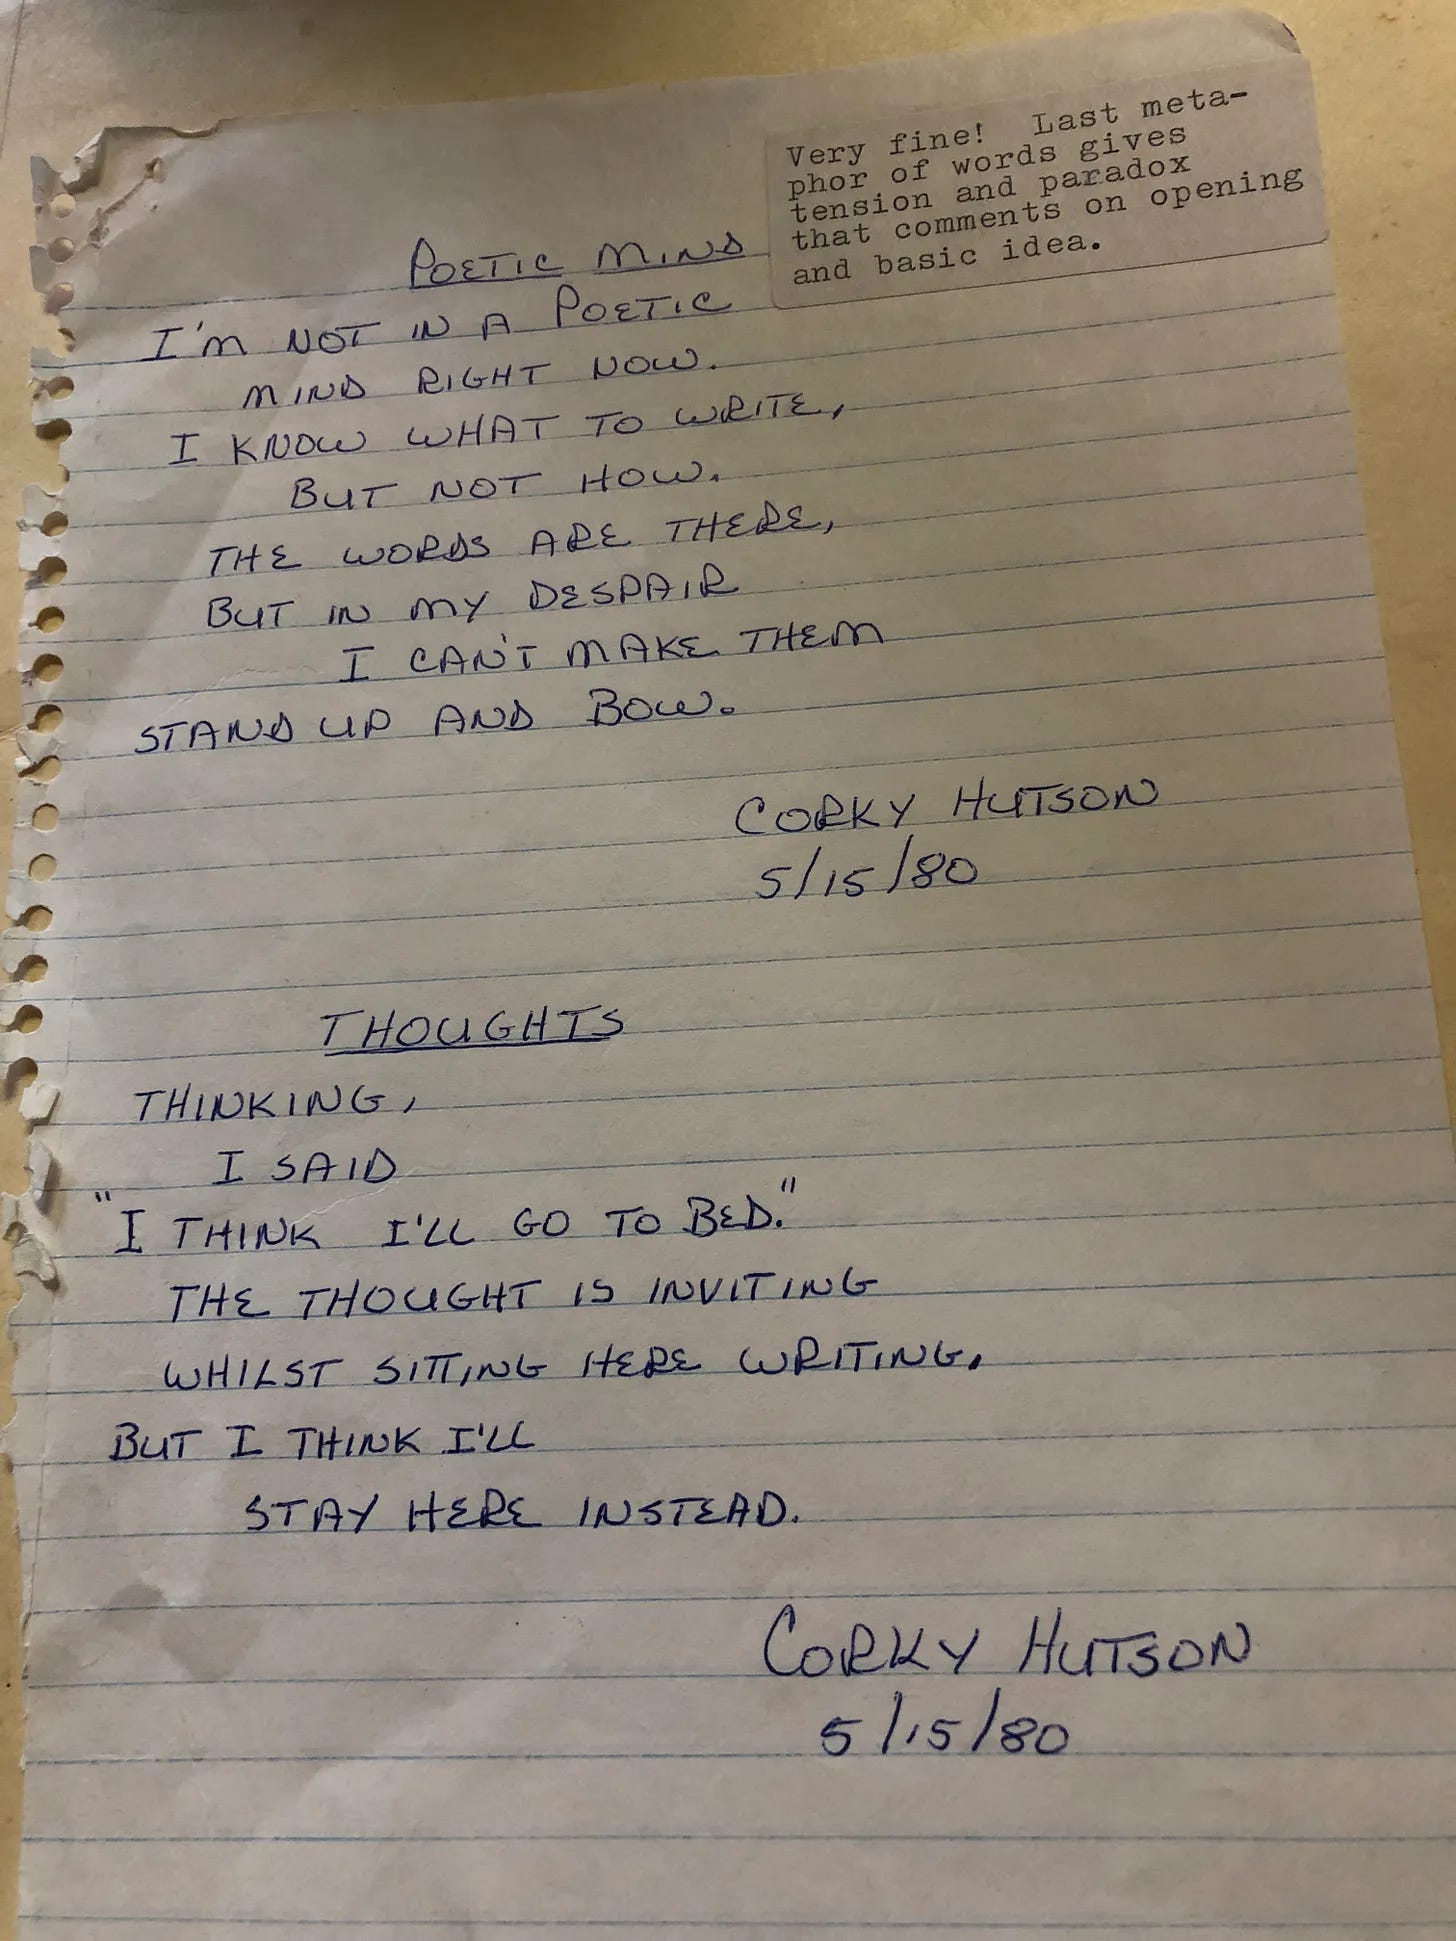 Very fine! Last meta-
phor of words gives
tension and paradox
that comments on opening
and basic idea.
POETIC MIND
I'M NOT IN A POETIC
MIND RIGHT NOW.
I KNOW WHAT TO WRITE,
BUT NOT HOW.
THE WORDS ARE THERE,
BUT IN MY DESPAIR
I CAN'T MAKE THEM
STAND UP AND BOW.
CORKY HUTSON
5/15/80
THOUGHTS
THINKING,
I SAID
"I THINK I'LL GO TO BED."
THE THOUGHT IS INVITING
WHILST SITTING HERE WRITING,
BUT I THINK I'LL
STAY HERE INSTEAD.
CORKY HUTSON
5/15/80